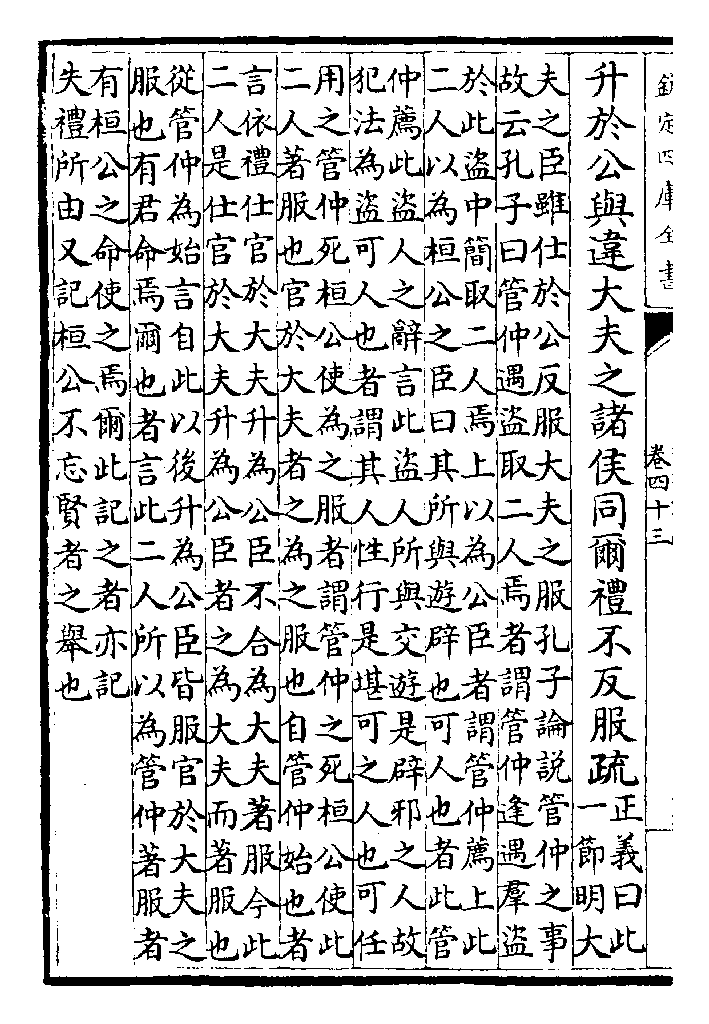 欽定四庫全書
卷四十三
升於公與違大夫之諸侯同爾禮不反服疏
正義曰此
一節明大
夫之臣雖仕於公反服大夫之服孔子論說管仲之事
故云孔子曰管仲遇盜取二人焉者謂管仲逢遇羣盜
於此盜中簡取二人焉上以為公臣者謂管仲薦上此
二人以為桓公之臣曰其所與遊辟也可人也者此管
仲薦此盜人之辭言此盜人所與交遊是辟邪之人故
犯法為盜可人也者謂其人性行是堪可之人也可任
用之管仲死桓公使為之服者謂管仲之死桓公使此
二人著服也官於大夫者之為之服也自管仲始也者
言依禮仕官於大夫升為公臣不合為大夫著服今此
二人是仕官於大夫升為公臣者之為大夫而著服也
從管仲為始言自此以後升為公臣皆服官於大夫之
服也有君命焉爾也者言此二人所以為管仲著服者
有桓公之命使之焉爾此記之者亦記
失禮所由又記桓公不忘賢者之舉也